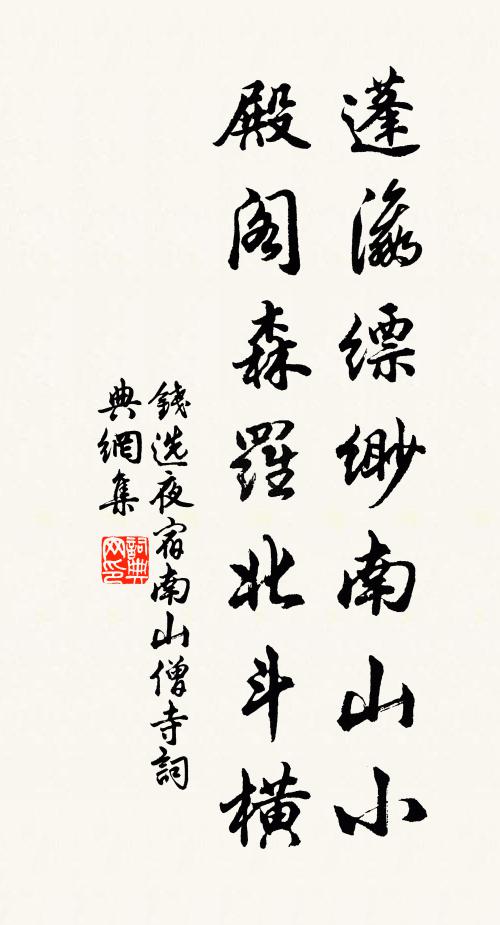 蓬瀛縹緲南山小
殿阁森羅北斗横
錢选夜宿南山僧寺詞
典網集
詞典
网印